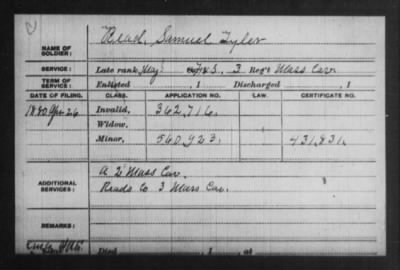 NAME OF SOLDIER: Read, Samuel Tyler
SERVICE: Late rank, F&S, 3 Reg't Mass Cav
TERM OF SERVICE: Enlisted , 1 Discharged , 1
DATE OF FILING. CLASS. APPLICATION NO. LAW. CERTIFICATE NO.
1880 Apr 26 Invalid, 362,716.
Widow,
Minor, 560,923. 431,831.
ADDITIONAL SERVICES: A 2" Mass Cav.
Reads Co 3 Mass Cav.
REMARKS:
Died , 1 , at